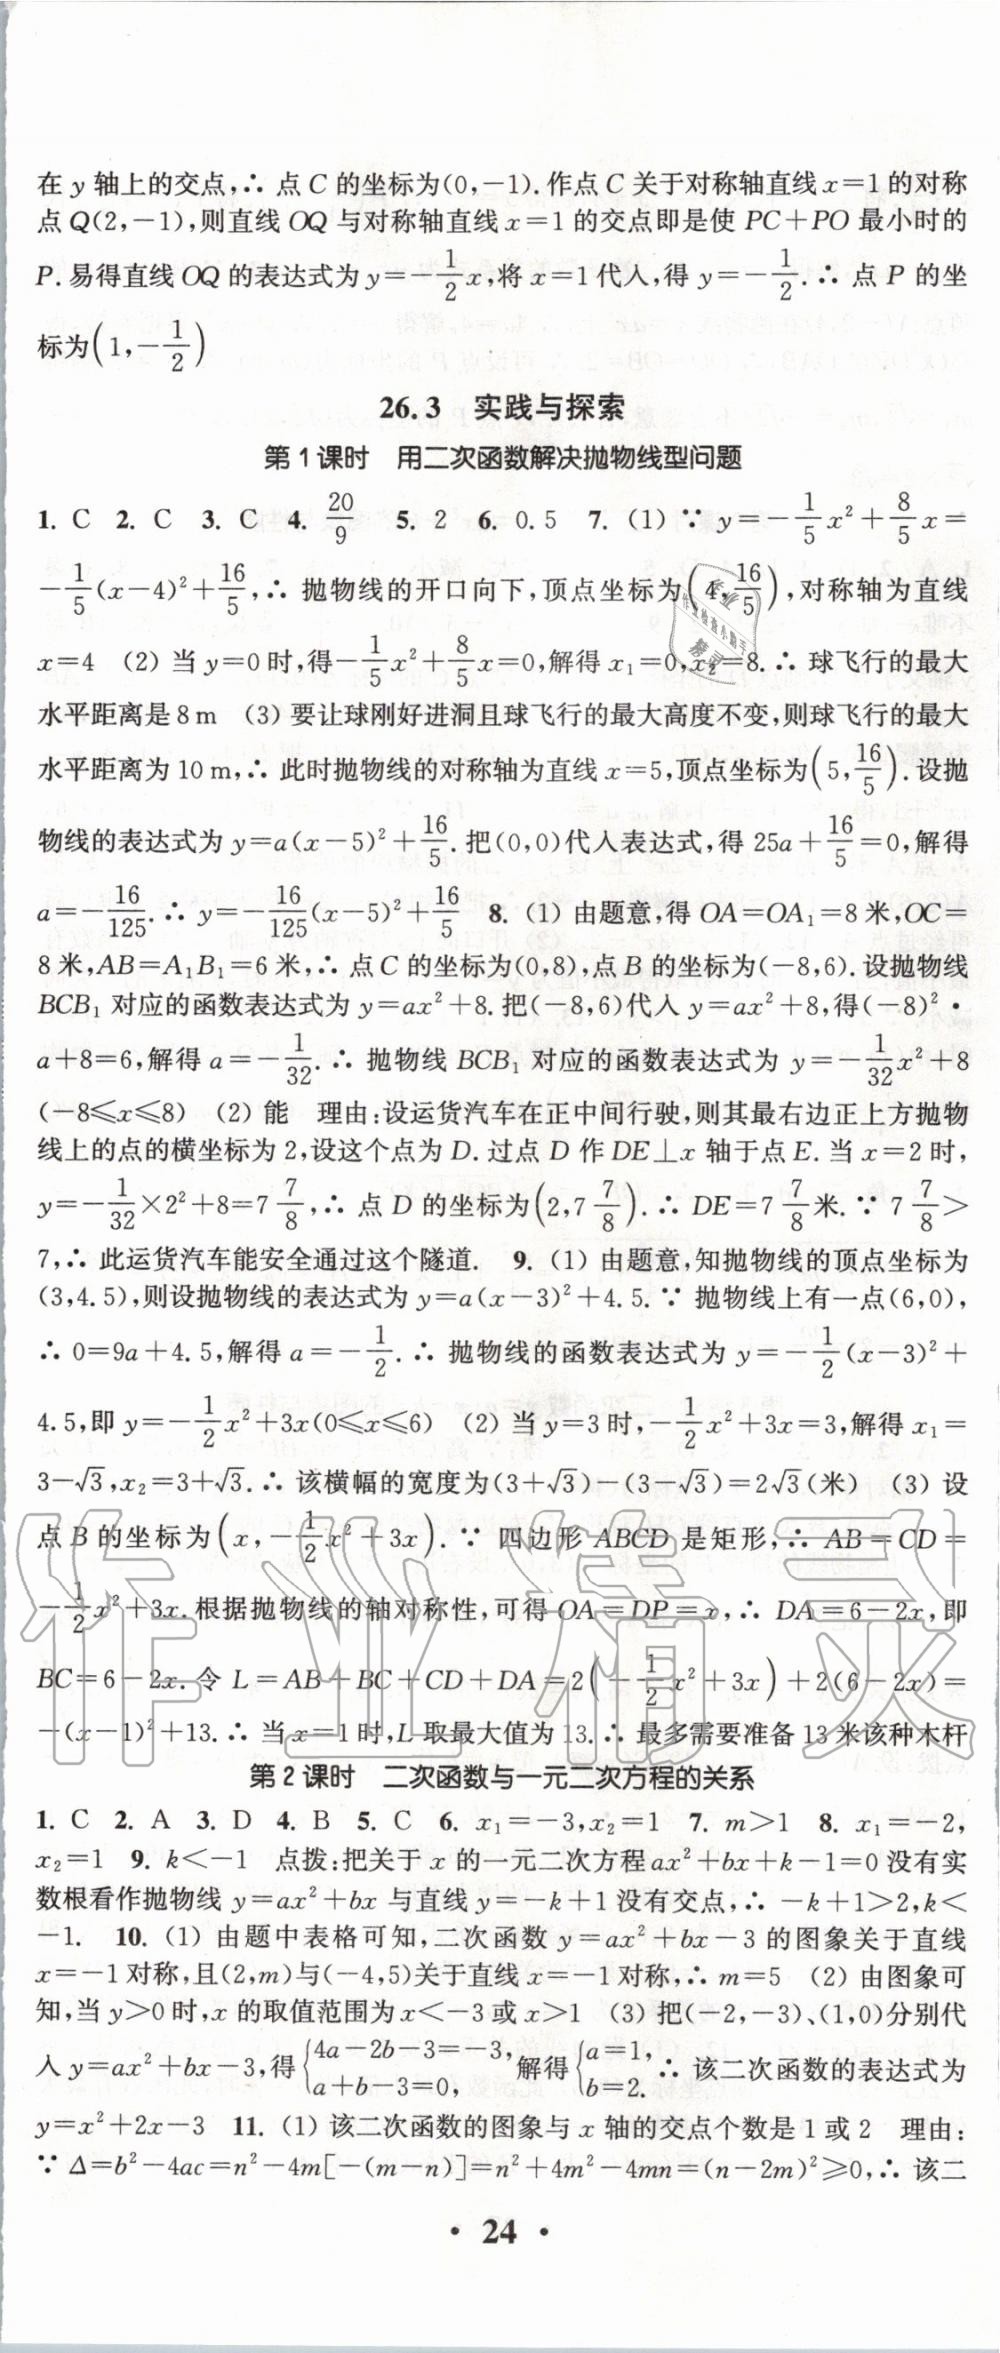 在 y 轴上的交点,∴ 点 C 的坐标为(0,−1).作点 C 关于对称轴直线 x=1 的对称
点 Q(2,−1),则直线 OQ 与对称轴直线 x=1 的交点即是使 PC+PO 最小时的
P.易得直线 OQ 的表达式为 y=−1/2x,将 x=1代入,得 y=−1/2.∴ 点 P 的坐
标为(1,−1/2)
26.3 实践与探索
第1课时 用二次函数解决抛物线型问题
1. C 2. C 3. C 4. 20/9 5. 2 6. 0.5 7. (1) ∵ y=−1/5x²+8/5x=
−1/5(x−4)²+16/5,∴ 抛物线的开口向下,顶点坐标为(4,16/5),对称轴为直线
x=4 (2) 当 y=0 时,得−1/5x²+8/5x=0,解得 x₁=0,x₂=8.∴ 球飞行的最大
水平距离是 8 m (3) 要让球刚好进洞且球飞行的最大高度不变,则球飞行的最大
水平距离为 10 m,∴ 此时抛物线的对称轴为直线 x=5,顶点坐标为(5,16/5).设抛
物线的表达式为 y=a(x−5)²+16/5.把(0,0)代入表达式,得 25a+16/5=0,解得
a=−16/125.∴ y=−16/125(x−5)²+16/5 8. (1) 由题意,得 OA=OA₁=8 米,OC=
8 米,AB=A₁B₁=6 米,∴ 点 C 的坐标为(0,8),点 B 的坐标为(−8,6).设抛物线
BCB₁ 对应的函数表达式为 y=ax²+8.把(−8,6)代入 y=ax²+8,得(−8)²·
a+8=6,解得 a=−1/32.∴ 抛物线 BCB₁ 对应的函数表达式为 y=−1/32x²+8
(−8≤x≤8) (2) 能 理由:设运货汽车在正中间行驶,则其最右边正上方抛物
线上的点的横坐标为 2,设这个点为 D.过点 D 作 DE⊥x 轴于点 E.当 x=2 时,
y=−1/32×2²+8=7 7/8,∴ 点 D 的坐标为(2,7 7/8).∴ DE=7 7/8 米.∵ 7 7/8>
7,∴ 此运货汽车能安全通过这个隧道. 9. (1) 由题意,知抛物线的顶点坐标为
(3,4.5),则设抛物线的表达式为 y=a(x−3)²+4.5.∵ 抛物线上有一点(6,0),
∴ 0=9a+4.5,解得 a=−1/2.∴ 抛物线的函数表达式为 y=−1/2(x−3)²+
4.5,即 y=−1/2x²+3x(0≤x≤6) (2) 当 y=3 时,−1/2x²+3x=3,解得 x₁=
3−√3,x₂=3+√3.∴ 该横幅的宽度为(3+√3)−(3−√3)=2√3(米) (3) 设
点 B 的坐标为(x,−1/2x²+3x).∵ 四边形 ABCD 是矩形,∴ AB=CD=
−1/2x²+3x.根据抛物线的轴对称性,可得 OA=DP=x,∴ DA=6−2x,即
BC=6−2x.令 L=AB+BC+CD+DA=2(−1/2x²+3x)+2(6−2x)=
−(x−1)²+13.∴ 当 x=1 时,L 取最大值为 13.∴ 最多需要准备 13 米该种木杆
第2课时 二次函数与一元二次方程的关系
1. C 2. A 3. D 4. B 5. C 6. x₁=−3,x₂=1 7. m>1 8. x₁=−2,
x₂=1 9. k<−1 点拨:把关于 x 的一元二次方程 ax²+bx+k−1=0 没有实
数根看作抛物线 y=ax²+bx 与直线 y=−k+1 没有交点,∴ −k+1>2,k<
−1. 10. (1) 由题中表格可知,二次函数 y=ax²+bx−3 的图象关于直线
x=−1 对称,且(2,m)与(−4,5)关于直线 x=−1 对称,∴ m=5 (2) 由图象可
知,当 y>0 时,x 的取值范围为 x<−3 或 x>1 (3) 把(−2,−3)、(1,0)分别代
入 y=ax²+bx−3,得{4a−2b−3=−3, a+b−3=0, 解得{a=1, b=2. ∴ 该二次函数的表达式为
y=x²+2x−3 11. (1) 该二次函数的图象与 x 轴的交点个数是 1 或 2 理由:
∵ Δ=b²−4ac=n²−4m[−(m−n)]=n²+4m²−4mn=(n−2m)²≥0,∴ 该二
· 24 ·
作业精灵